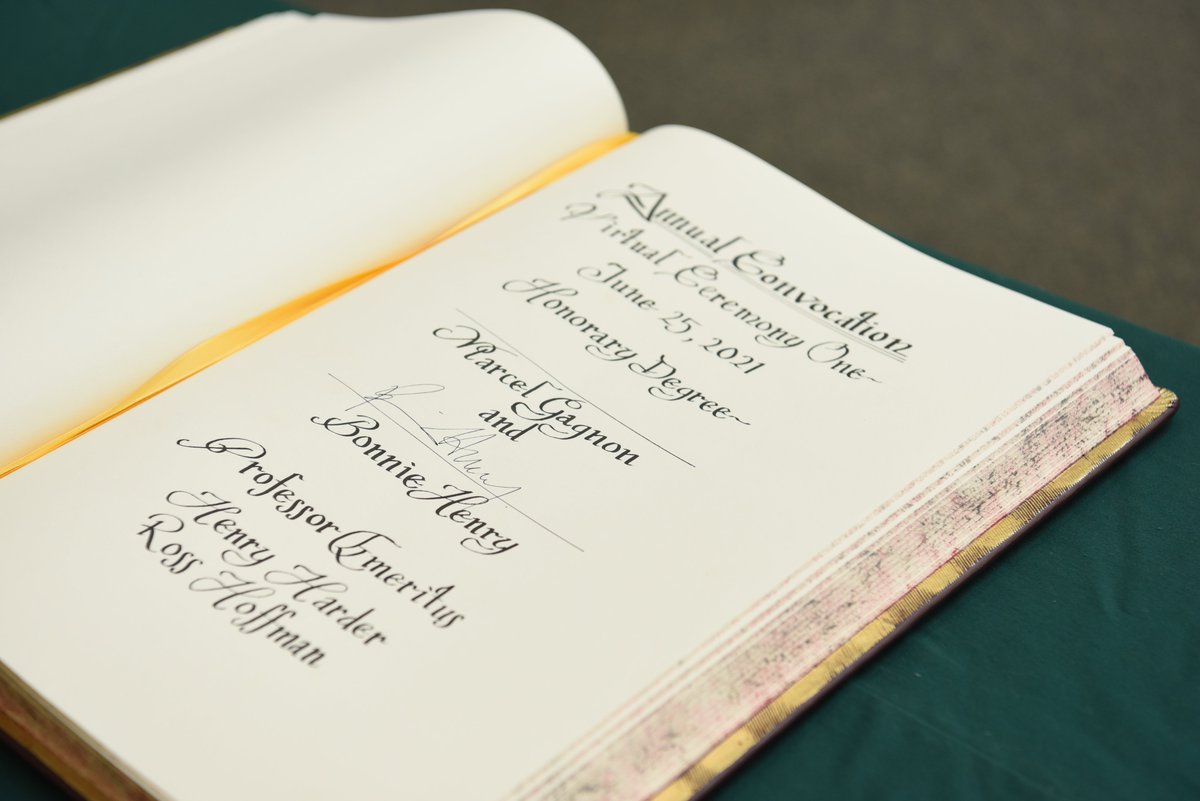 Annual Convocation
Virtual Ceremony One
June 25, 2021
Honorary Degree
Marcel Gagnon
and
Bonnie Henry
Professor Emeritus
Henry Harder
Ross Hoffman